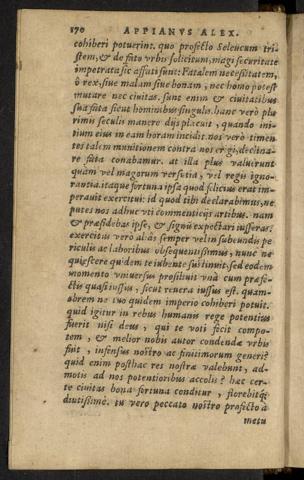 170 APPIANVS ALEX.
cohiberi potuerint. quo profecto Seleucum tri-
stem, & de fato vrbis solicitum, magi securitate
impetrata sic affati sunt: Fatalem necessitatem,
ô rex, siue malam siue bonam, nec homo potest
mutare nec ciuitas. sunt enim & ciuitatibus
sua fata sicut hominibus singulis. hanc verò plu
rimis seculis manere dijs placuit, quando ini-
tium eius in eam horam incidit. nos verò timen
tes talem munitionem contra nos erigi, declina-
re fata conabamur. at illa plus valuerunt
quàm vel magorum versutia, vel regis igno-
rantia. itaque fortuna ipsa quod felicius erat im-
perauit exercitui: id quod tibi declarabimus, ne
putes nos adhuc vti commenticijs artibus. nam
& præsidebas ipse, & signũ expectari iusseras.
exercitus verò aliâs semper vel in subeundis pe
riculis ac laboribus obsequentissimus, nunc ne
quiescere quidem te iubente sustinuit, sed eodem
momento vniuersus prosiluit vnà cum præfe-
ctis quasi iussus, sicut reuera iussus est. quam-
obrem ne tuo quidem imperio cohiberi potuit.
quid igitur in rebus humanis rege potentius
fuerit nisi deus, qui te voti fecit compo-
tem, & melior nobis autor condendæ vrbis
fuit, infensus nostro ac finitimorum generi?
quid enim posthac res nostræ valebunt, ad-
motis ad nos potentioribus accolis? hæc cer-
te ciuitas bona fortuna conditur, florebitq́;
diutissimè. tu vero peccato nostro profecto à
metu